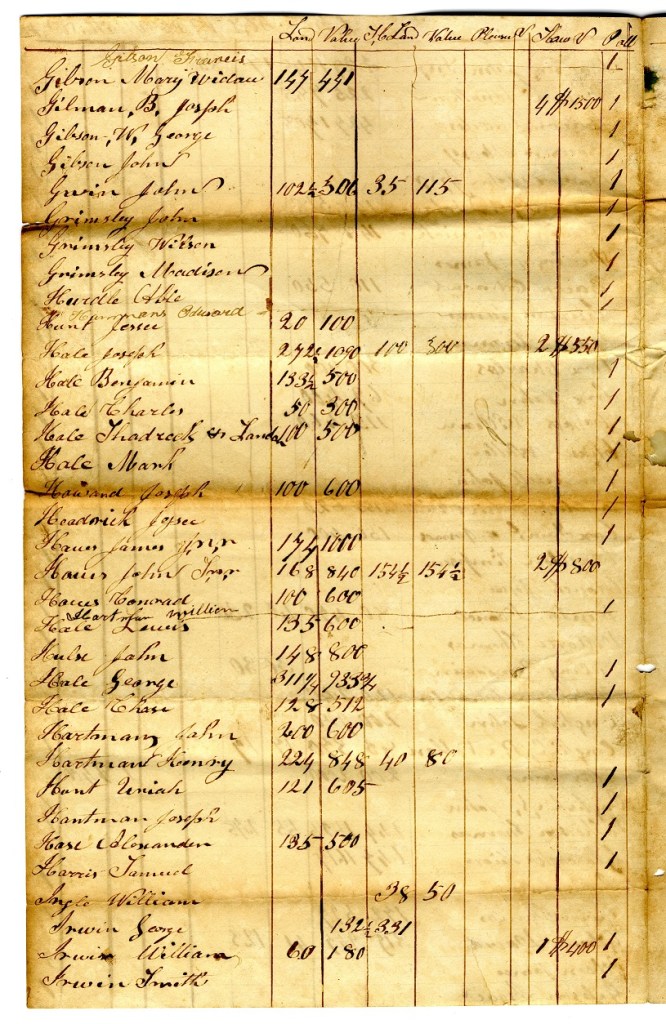 Land Value Value Slaves V Poll
Gibson Francis 1
Gibson Mary Widow 147 441
Gilman, B, Joseph 4 $1500 1
Gibson, W, George 1
Gibson John 1
Gwin John 102½ 306 35 115 1
Grimsley John 1
Grimsley Wilson 1
Grimsley Madison 1
Hurdle Able 1
Edward
Hunt Jesse 20 100
Hale Joseph 272 1090 100 300 2 $550
Hale Benjamin 133½ 500 1
Hale Charles 50 300 1
Hale Landon 100 500 1
Hale Mark 1
Howard Joseph 100 600 1
Headrick 1
James 174 1000 1
John 168 840 154½ 154½ 2 $800
Conrad 100 600
Hartman William 1
Hale Lewis 135 600
Hulse John 148 800
Hale George 311¼ 935¾ 1
Hale Chase 128 512 1
Hartman John 200 600
Hartman Henry 224 848 40 80
Hunt Uriah 121 605 1
Hartman Joseph 1
Hase Alexander 135 500 1
Harris Samuel 1
Ingle William 38 50
Irwin Gorge 132½ 331
Irwin William 60 180 1 $400 1
Irwin Smith 1